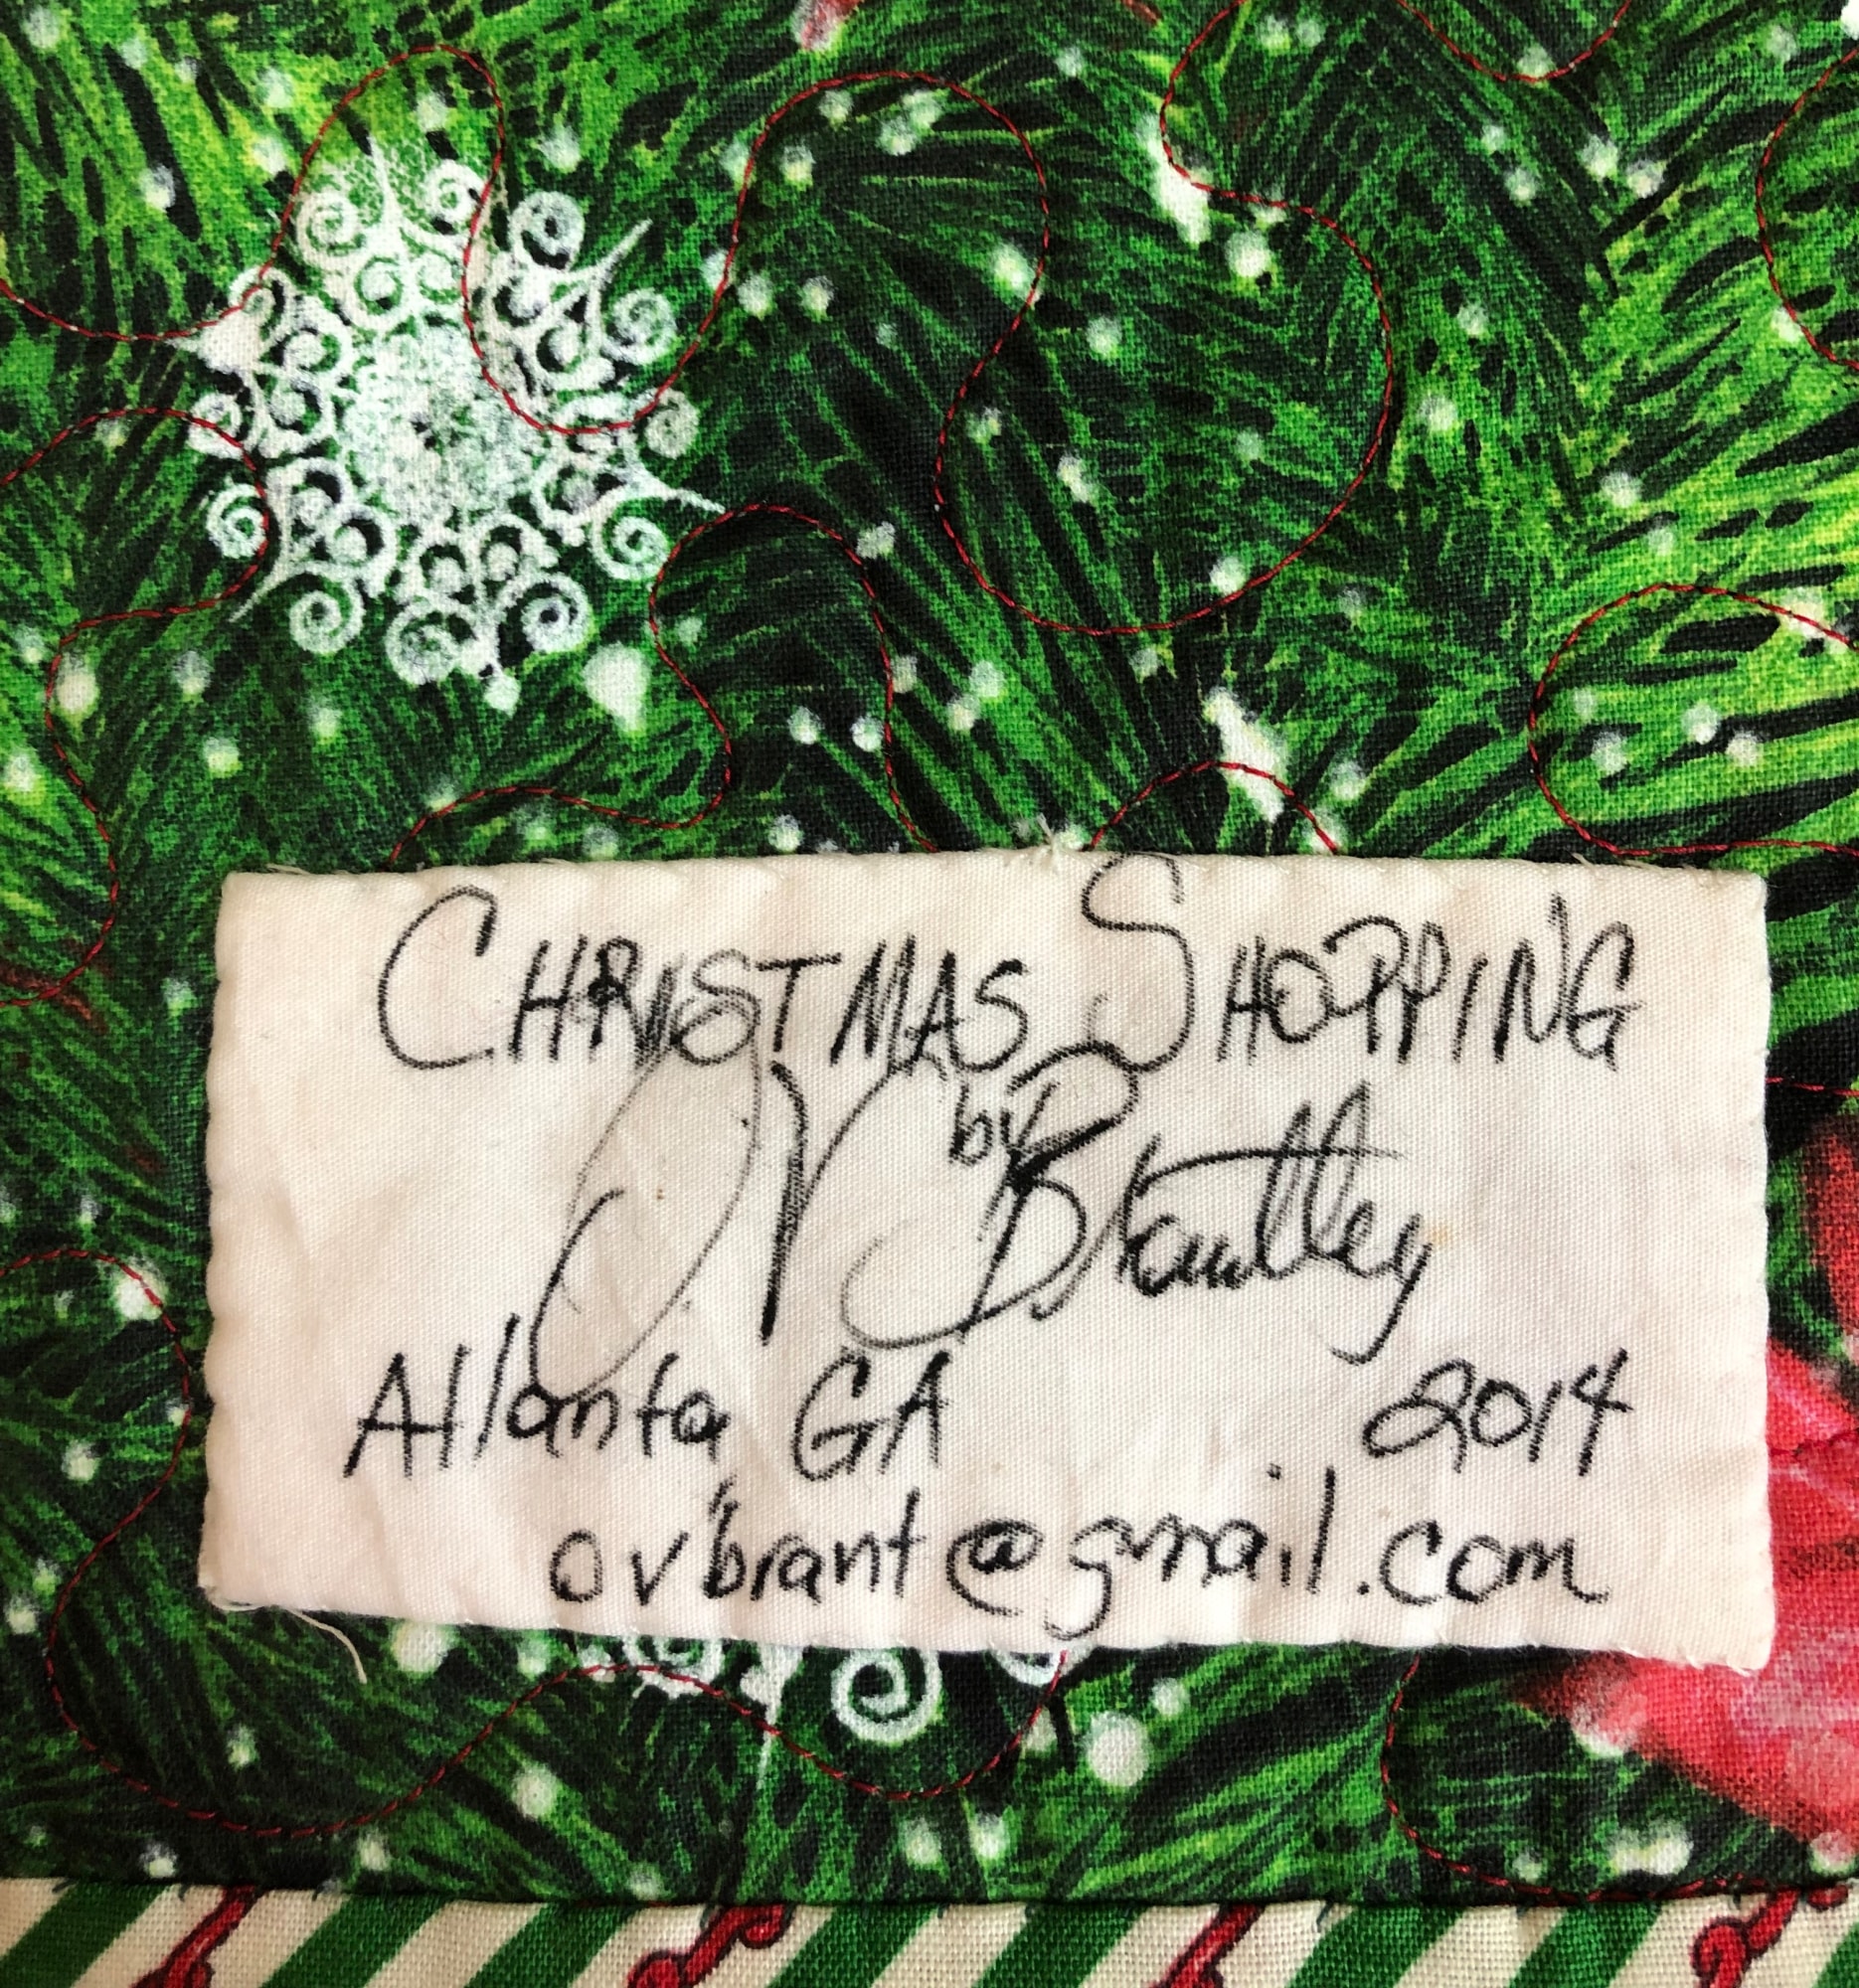 CHRISTMAS SHOPPING
by
OV Brantley
Atlanta, GA 2014
ovbrant@gmail.com